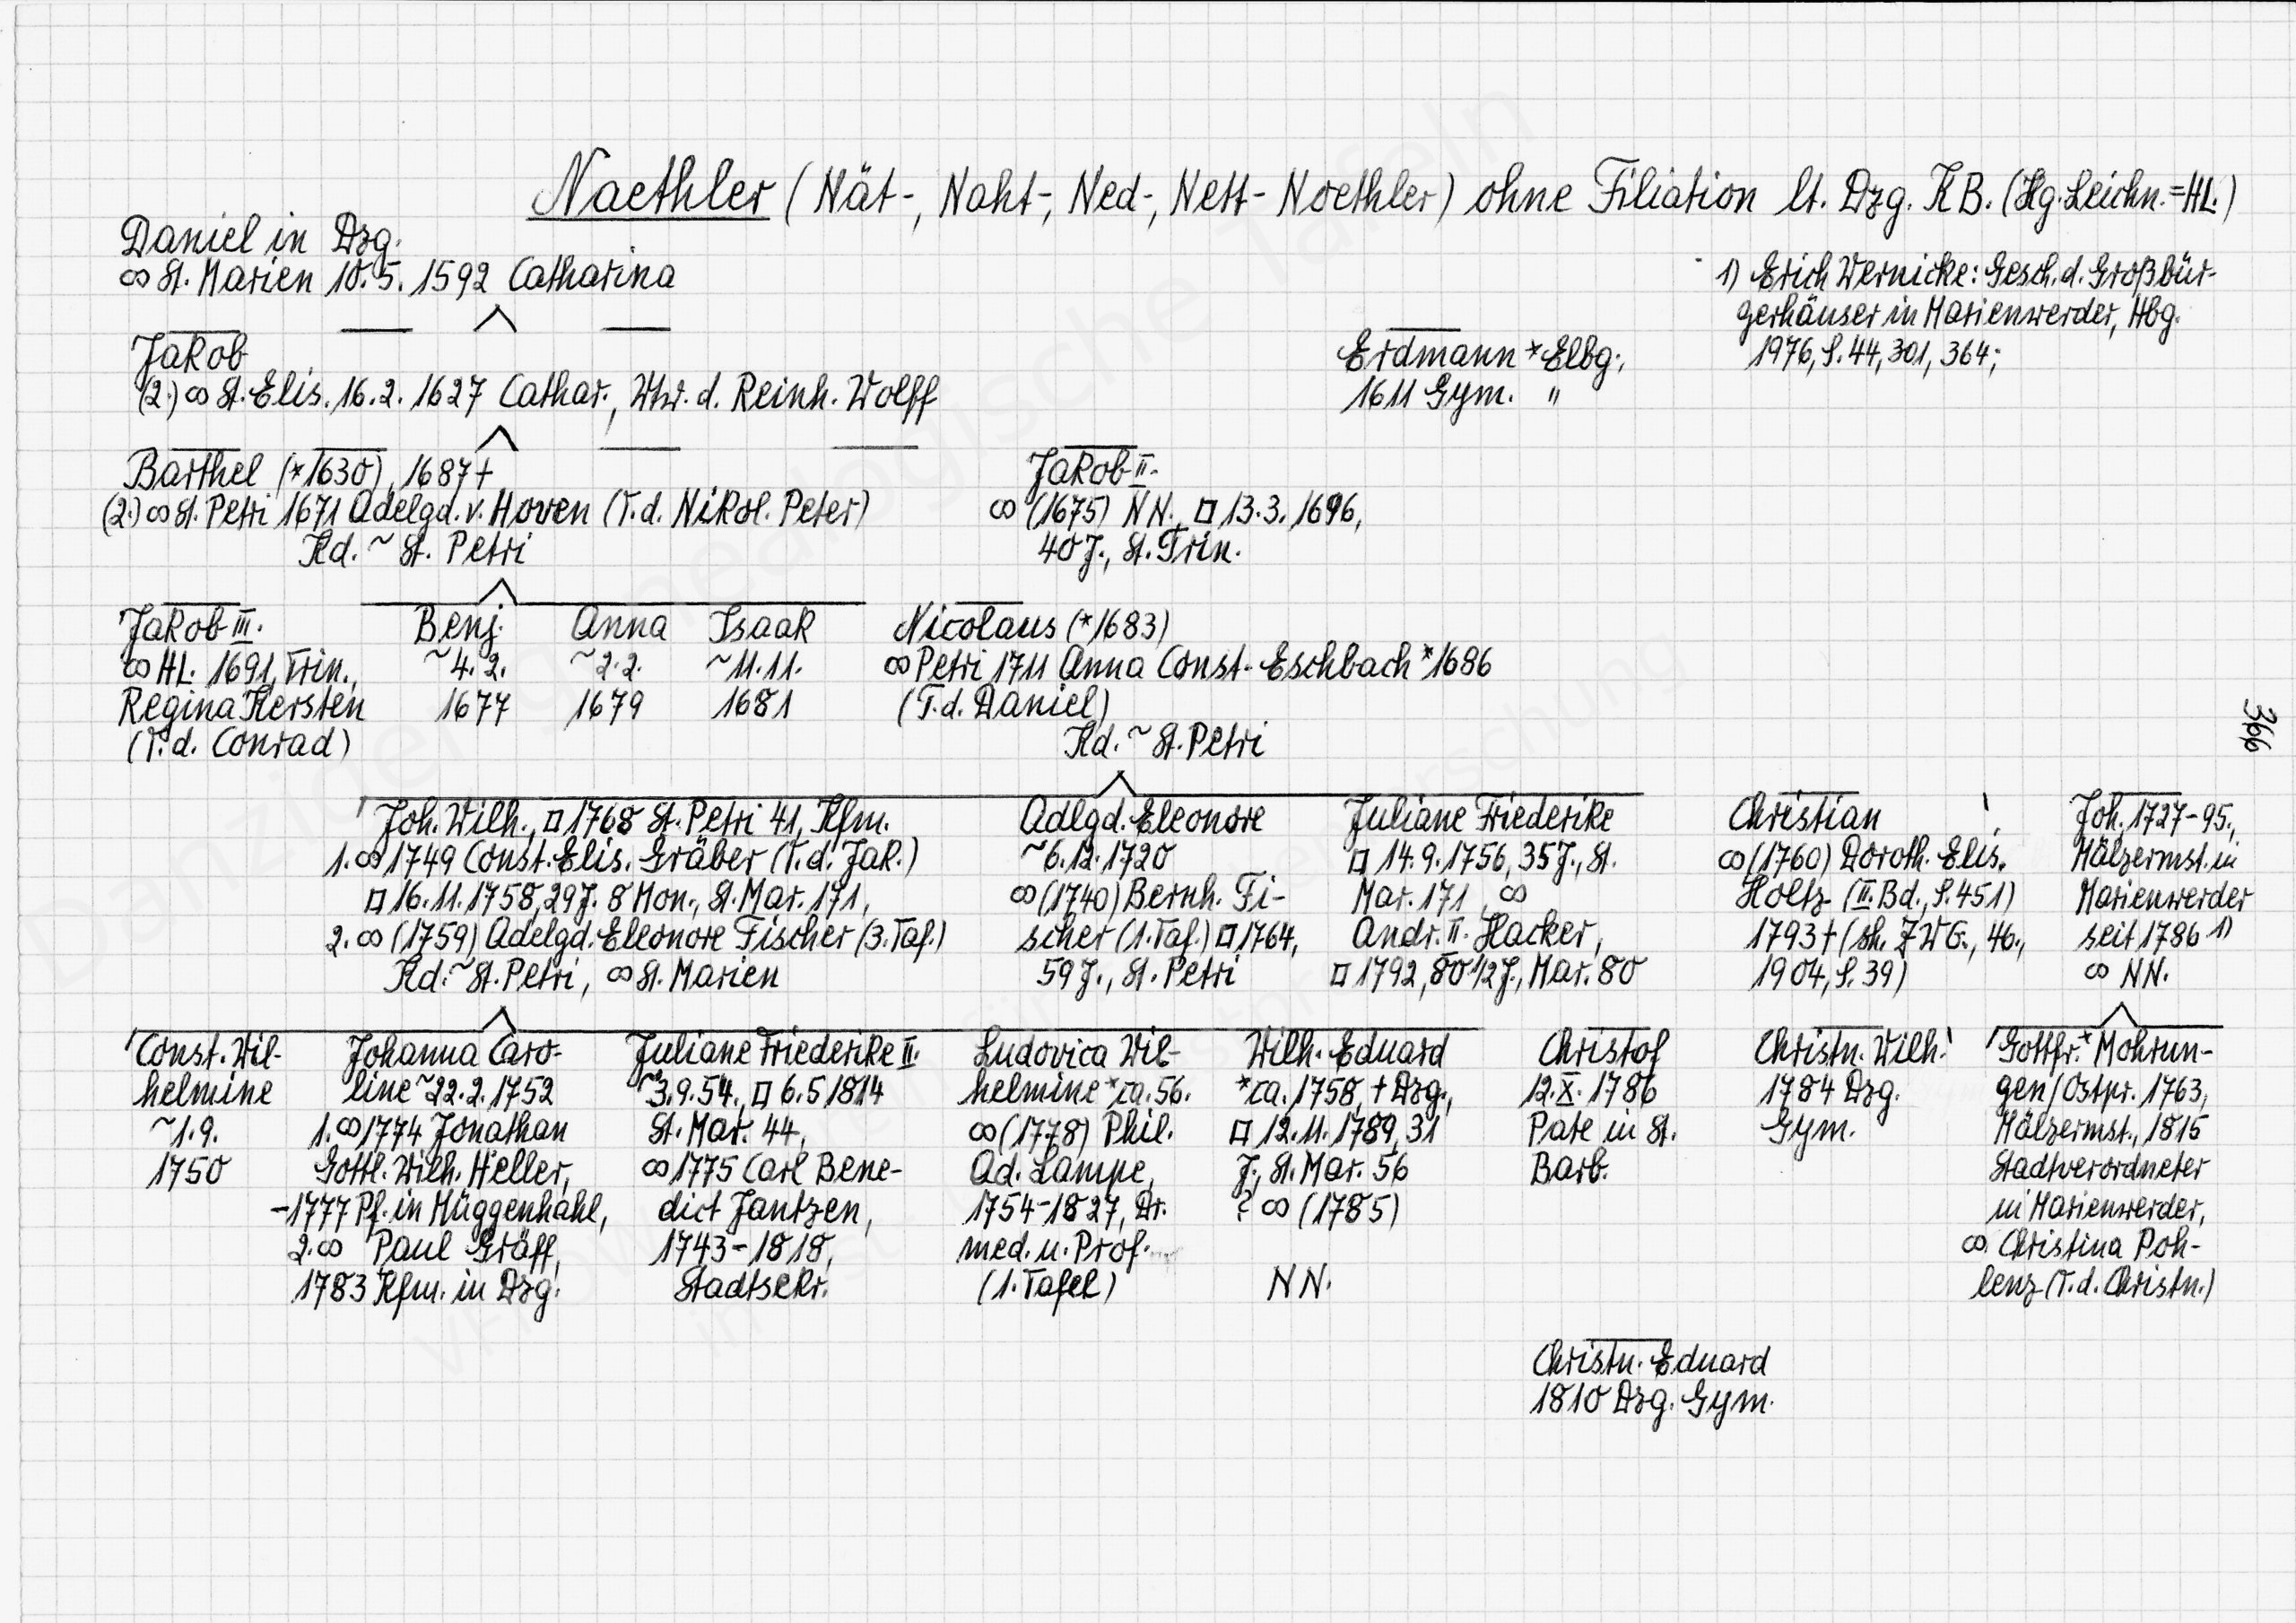 Naethler (Nät-, Naht-, Ned-, Nett- Noethler) ohne Filiation lt. Dzg. KB. (Hg. Leichn. = HL.)
Daniel in Dzg.
∞ St. Marien 10.5.1592 Catharina
1) Erich Wernicke: Gesch. d. Großbür-
gerhäuser in Marienwerder, Hbg.
1976, S. 44, 301, 364;
Jakob
(2.) ∞ St. Elis. 16.2.1627 Cathar., Wtw. d. Reinh. Wolff
Erdmann * Elbg.,
1611 Gym. "
Barthel (*1630), 1687 †
(2.) ∞ St. Petri 1671 Adelgd. v. Hoven (T. d. Nikol. Peter)
Kd. ~ St. Petri
Jakob II.
∞ (1675) NN., □ 13.3.1696,
40 J., St. Trin.
Jakob III.
∞ HL. 1691, Trin.,
Regina Kersten
(T. d. Conrad)
Benj.
~ 4.2.
1677
Anna
~ 2.2.
1679
Isaak
~ 11.11.
1681
Nicolaus (*1683)
∞ Petri 1711 Anna Const. Eschbach *1686
(T. d. Daniel)
Kd. ~ St. Petri
Joh. Wilh., □ 1768 St. Petri 41, Kfm.
1. ∞ 1749 Const. Elis. Gräber (T. d. Jak.)
□ 16.11.1758, 29 J. 8 Mon., St. Mar. 171,
2. ∞ (1759) Adelgd. Eleonore Fischer (3. Taf.)
Kd. ~ St. Petri, ∞ St. Marien
Adlgd. Eleonore
~ 6.12.1720
∞ (1740) Bernh. Fi-
scher (1. Taf.) □ 1764,
59 J., St. Petri
Juliane Friederike
□ 14.9.1756, 35 J., St.
Mar. 171, ∞
Andr. II. Hacker,
□ 1792, 80 1/2 J., Mar. 80
Christian
∞ (1760) Doroth. Elis.
Holtz (II. Bd., S. 451)
1793 † (sh. ZWG., 46.,
1904, S. 39)
Joh. 1727-95.,
Mälzermst. in
Marienwerder
seit 1786 1)
∞ NN.
Const. Wil-
helmine
~ 1.9.
1750
Johanna Caro-
line ~ 22.2.1752
1. ∞ 1774 Jonathan
Gottl. Wilh. Heller,
-1777 Pf. in Müggenhahl,
2. ∞ Paul Gräff,
1783 Kfm. in Dzg.
Juliane Friederike II.
~ 3.9.54., □ 6.5 1814
St. Mar. 44,
∞ 1775 Carl Bene-
dict Jantzen,
1743-1818,
Stadtsekr.
Ludovica Wil-
helmine * ca. 56.
∞ (1778) Phil.
Ad. Lampe,
1754-1827, Dr.
med. u. Prof.
(1. Tafel)
Wilh. Eduard
* ca. 1758, † Dzg.,
□ 12.11.1789, 31
J., St. Mar. 56
? ∞ (1785)
NN.
Christof
12.X.1786
Pate in St.
Barb.
Christn. Wilh.
1784 Dzg.
Gym.
Gottfr. * Mohrun-
gen/Ostpr. 1763,
Mälzermst., 1815
Stadtverordneter
in Marienwerder,
∞ Christina Poh-
lenz (T. d. Christn.)
Christn. Eduard
1810 Dzg. Gym.
366